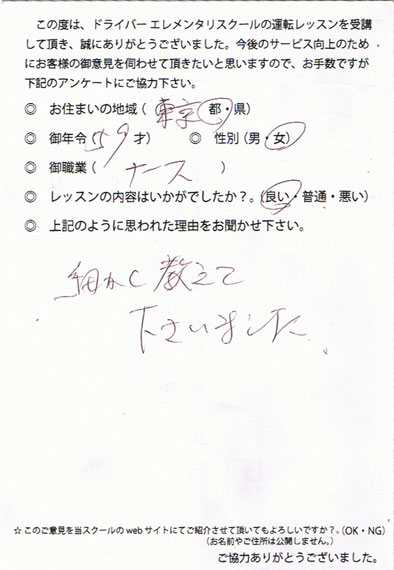 この度は、ドライバー エレメンタリスクールの運転レッスンを受講
して頂き、誠にありがとうございました。今後のサービス向上のため
にお客様の御意見を伺わせて頂きたいと思いますので、お手数ですが
下記のアンケートにご協力下さい。
◎ お住まいの地域（東京 都・県）
◎ 御年令 59 才） ◎ 性別（男・女）
◎ 御職業（ ナース ）
◎ レッスンの内容はいかがでしたか？。（良い・普通・悪い）
◎ 上記のように思われた理由をお聞かせ下さい。
細かく教えて
下さいました
☆このご意見を当スクールの web サイトにてご紹介させて頂いてもよろしいですか？。（OK・NG）
（お名前やご住所は公開しません。）
ご協力ありがとうございました。